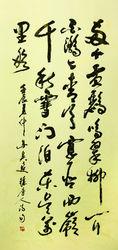 两个黄鸝鳴翠柳一行
白鷺上青天窗含西嶺
千秋雪門泊东吴萬
里船
壬辰